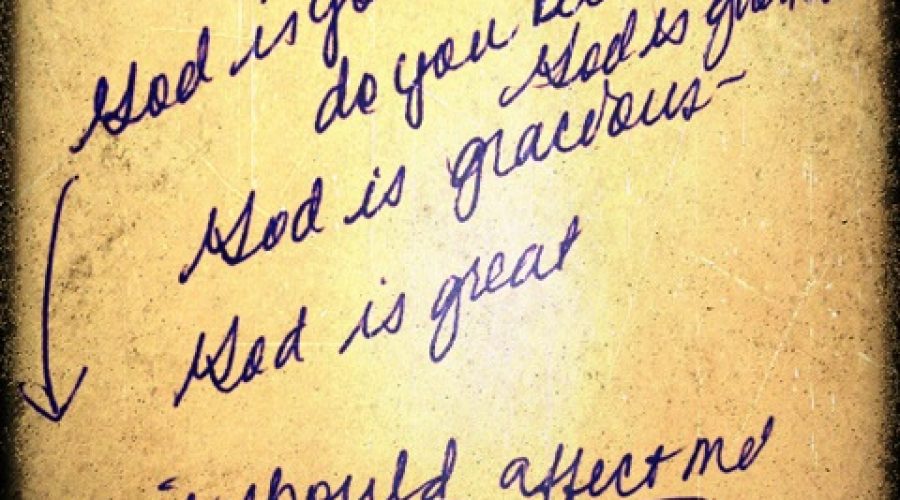 God is
do you
God is
God is gracious-
God is great
should affect me